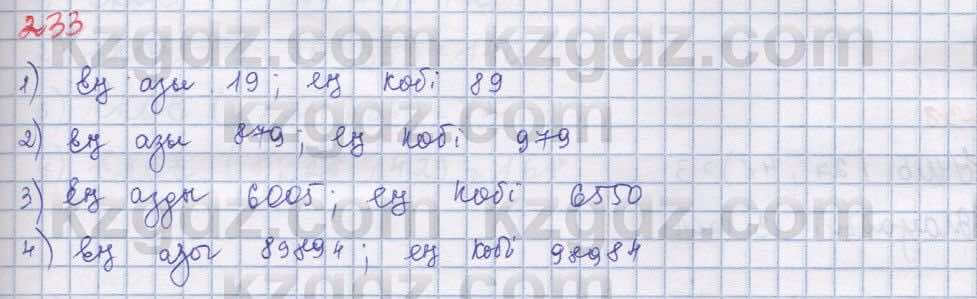 233
1) ең азы 19; ең көбі 89
2) ең азы 879; ең көбі 979
3) ең азды 6005; ең көбі 6550
4) ең азы 89894; ең көбі 98984
kzgdz.com kzgdz.com
kzgdz.com kzgdz.com
kzgdz.com kzgdz.com